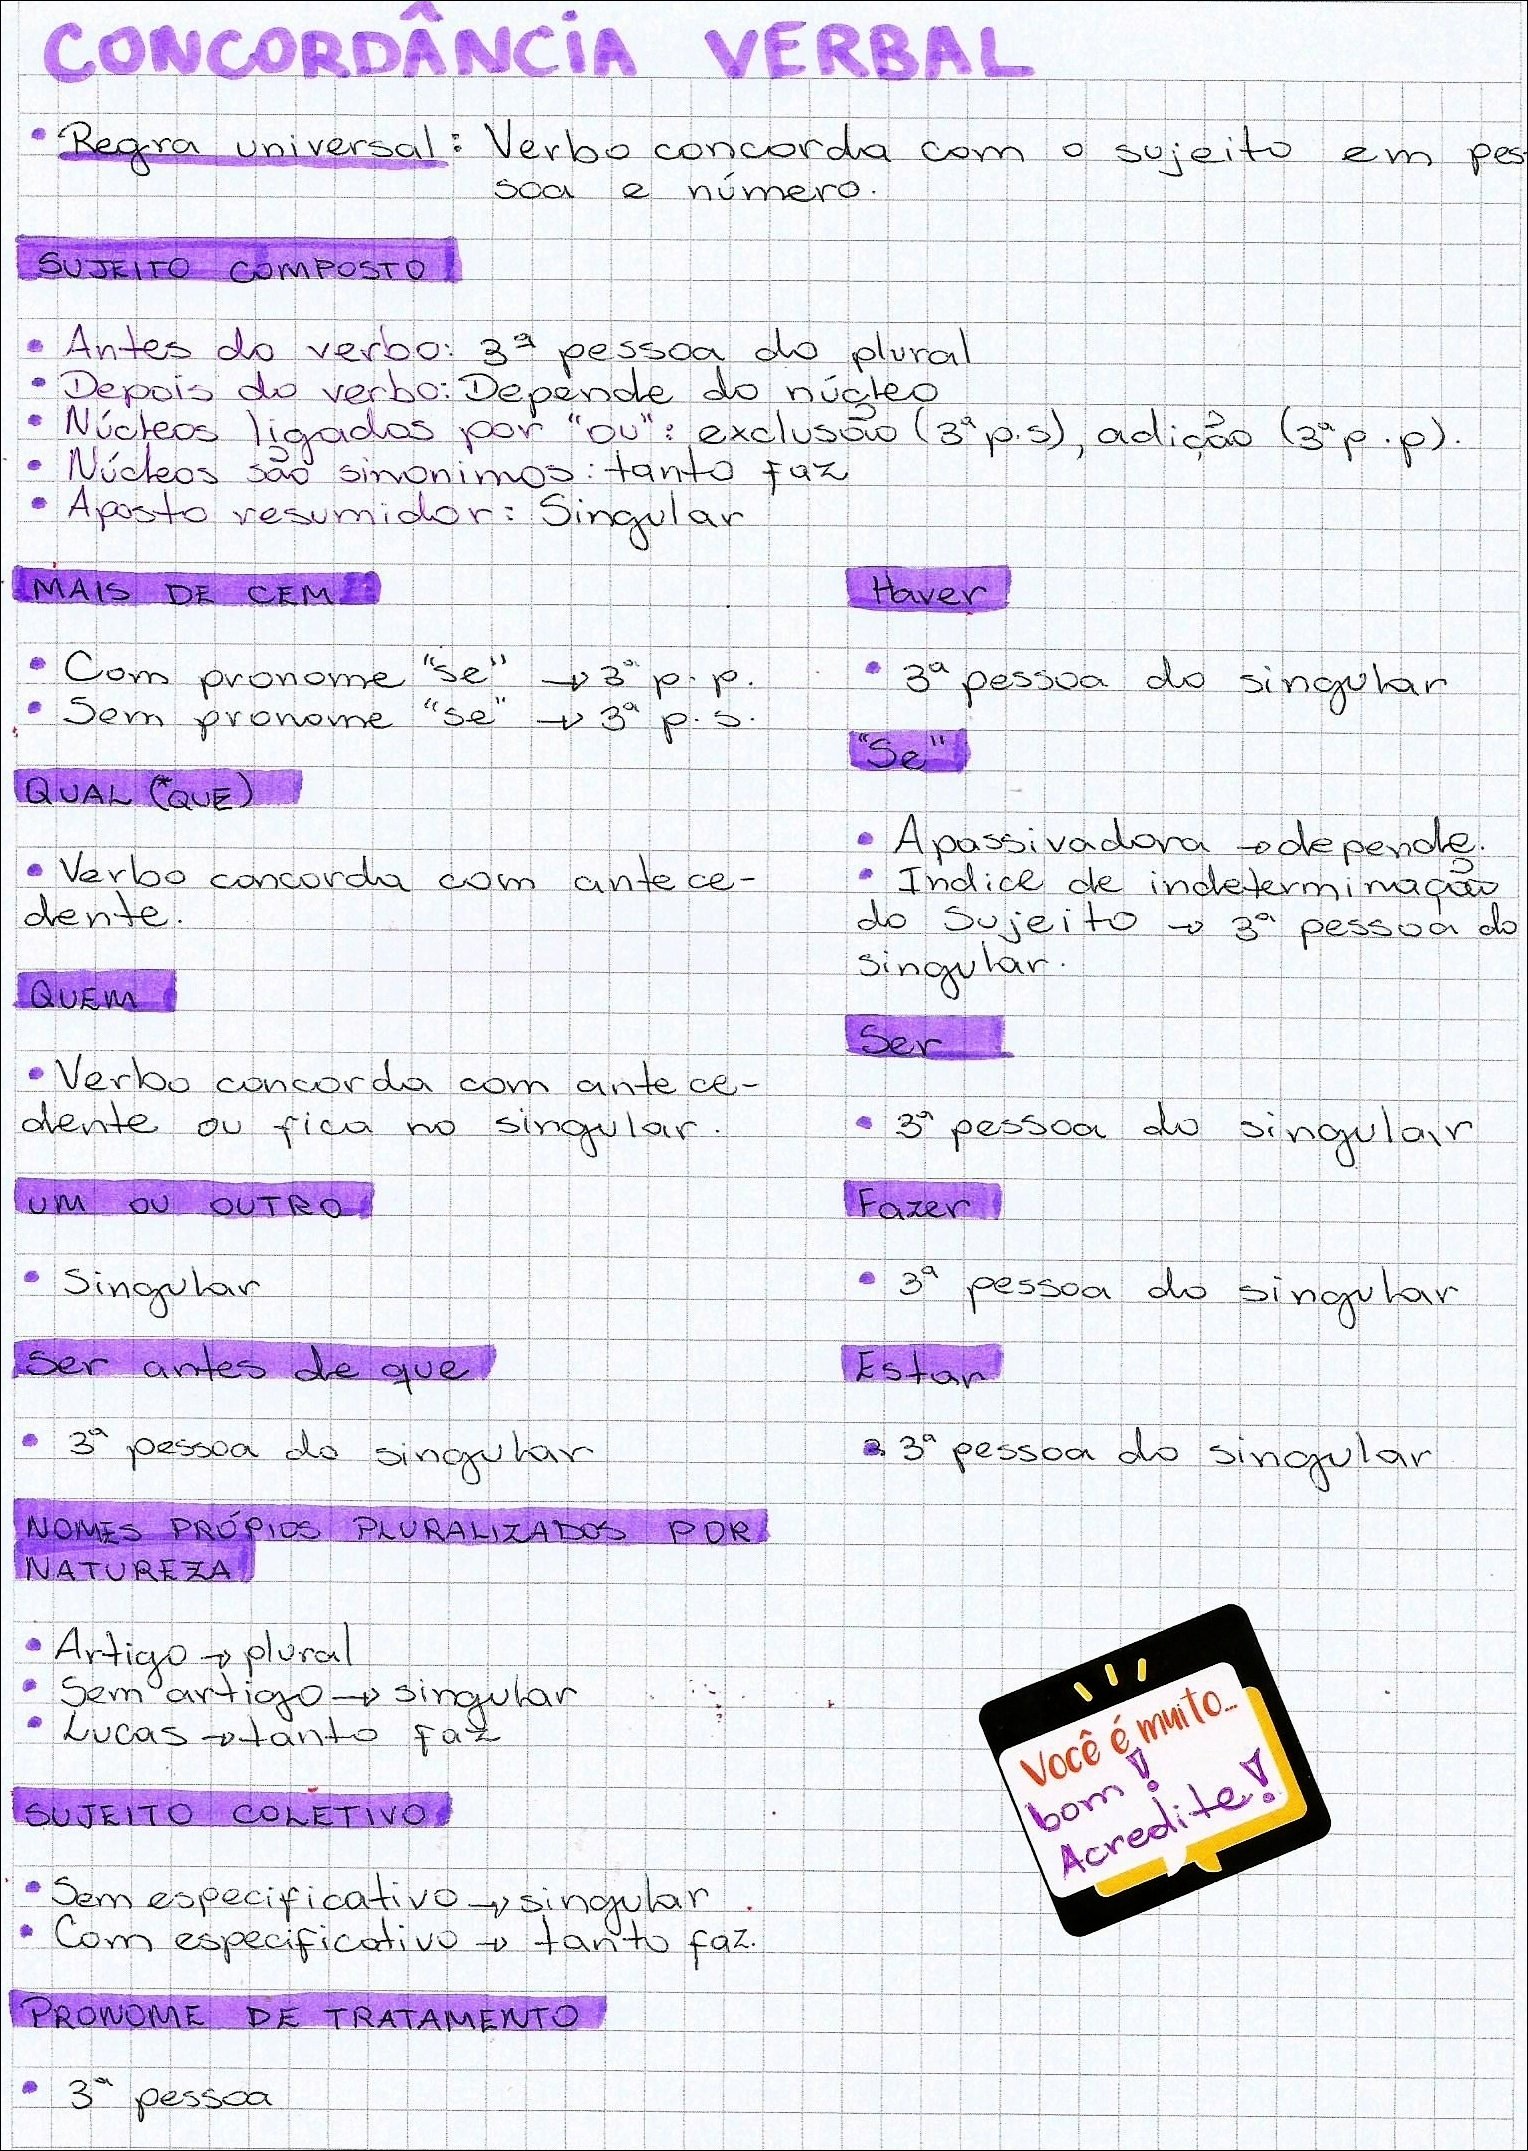 CONCORDÂNCIA VERBAL
• Regra universal: Verbo concorda com o sujeito em pes-
soa e número.
SUJEITO COMPOSTO
• Antes do verbo: 3ª pessoa do plural
• Depois do verbo: Depende do núcleo
• Núcleos ligados por "ou": exclusão (3ª p.s), adição (3ª p.p).
• Núcleos são sinonimos: tanto faz
• Aposto resumidor: Singular
MAIS DE CEM
• Com pronome "se" → 3ª p.p.
• Sem pronome "se" → 3ª p.s.
QUAL (*QUE)
• Verbo concorda com antece-
dente.
QUEM
• Verbo concorda com antece-
dente ou fica no singular.
UM OU OUTRO
• Singular
Ser antes de que
• 3ª pessoa do singular
NOMES PRÓPIOS PLURALIZADOS POR
NATUREZA
• Artigo → plural
• Sem artigo → singular
• Lucas → tanto faz
SUJEITO COLETIVO
• Sem especificativo → singular
• Com especificativo → tanto faz.
PRONOME DE TRATAMENTO
• 3ª pessoa
Haver
• 3ª pessoa do singular
"Se"
• Apassivadora → depende.
• Indice de indeterminação
do sujeito → 3ª pessoa do
singular.
Ser
• 3ª pessoa do singular
Fazer
• 3ª pessoa do singular
Estar
• 3ª pessoa do singular
Você é muito...
bom!
Acredite!